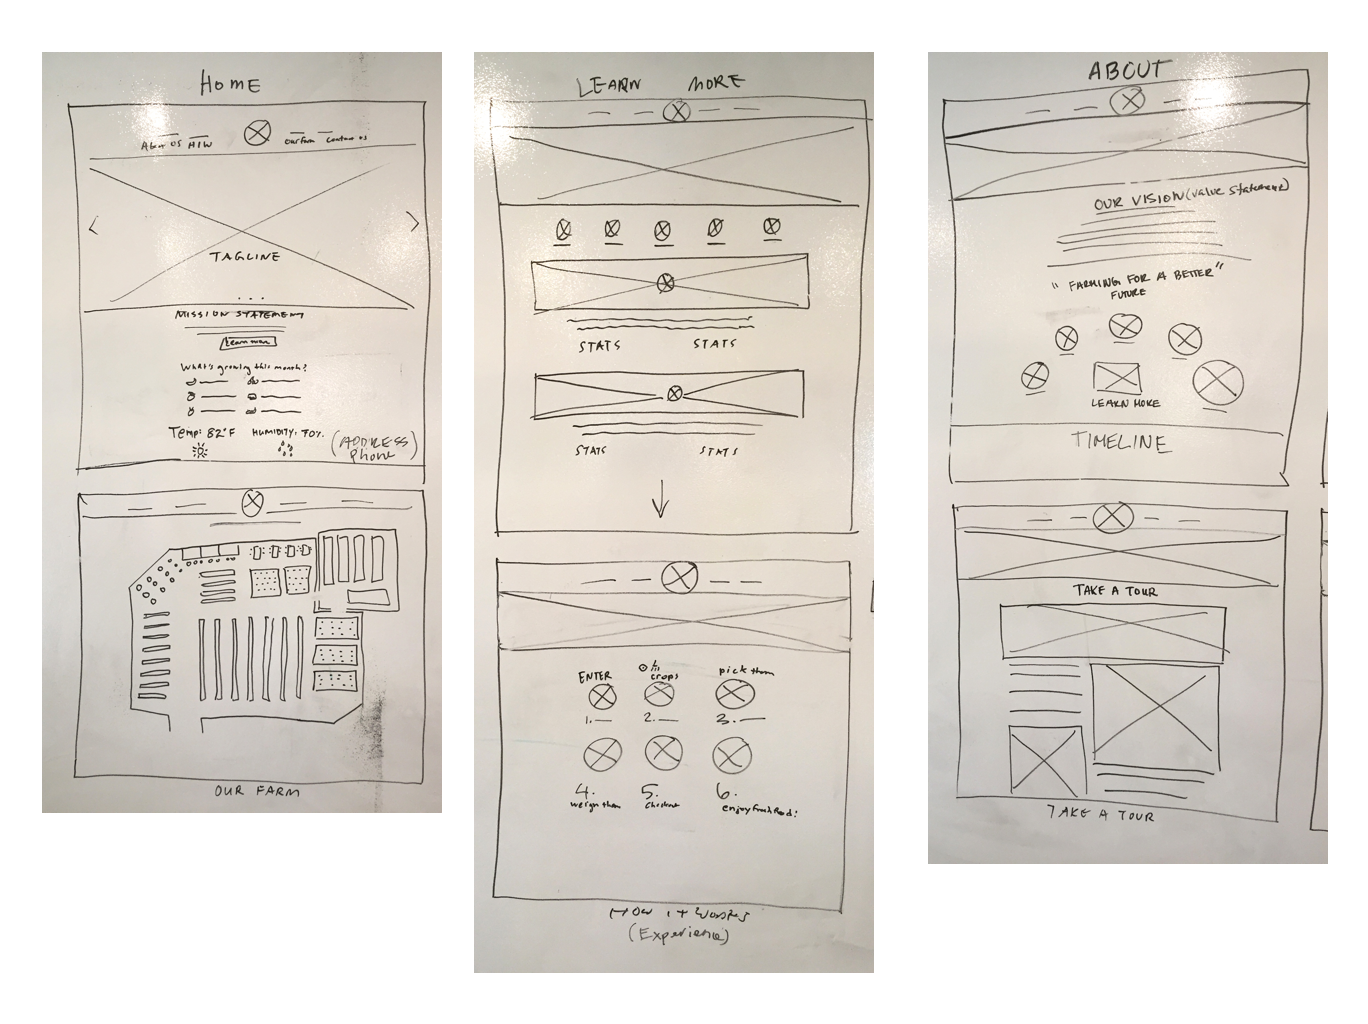 HOME
About US HIW Our farm Contact us
TAGLINE
MISSION STATEMENT
Learn more
What's growing this month?
Temp: 82°F HUMIDITY: 70%
(ADDRESS)
Phone
OUR FARM
LEARN MORE
STATS STATS
STATS STATS
ENTER crops pick them
1. 2. 3.
4. 5. 6.
weigh them checkout enjoy fresh food!
How it works
(Experience)
ABOUT
OUR VISION (value statement)
"FARMING FOR A BETTER"
FUTURE
LEARN MORE
TIMELINE
TAKE A TOUR
TAKE A TOUR